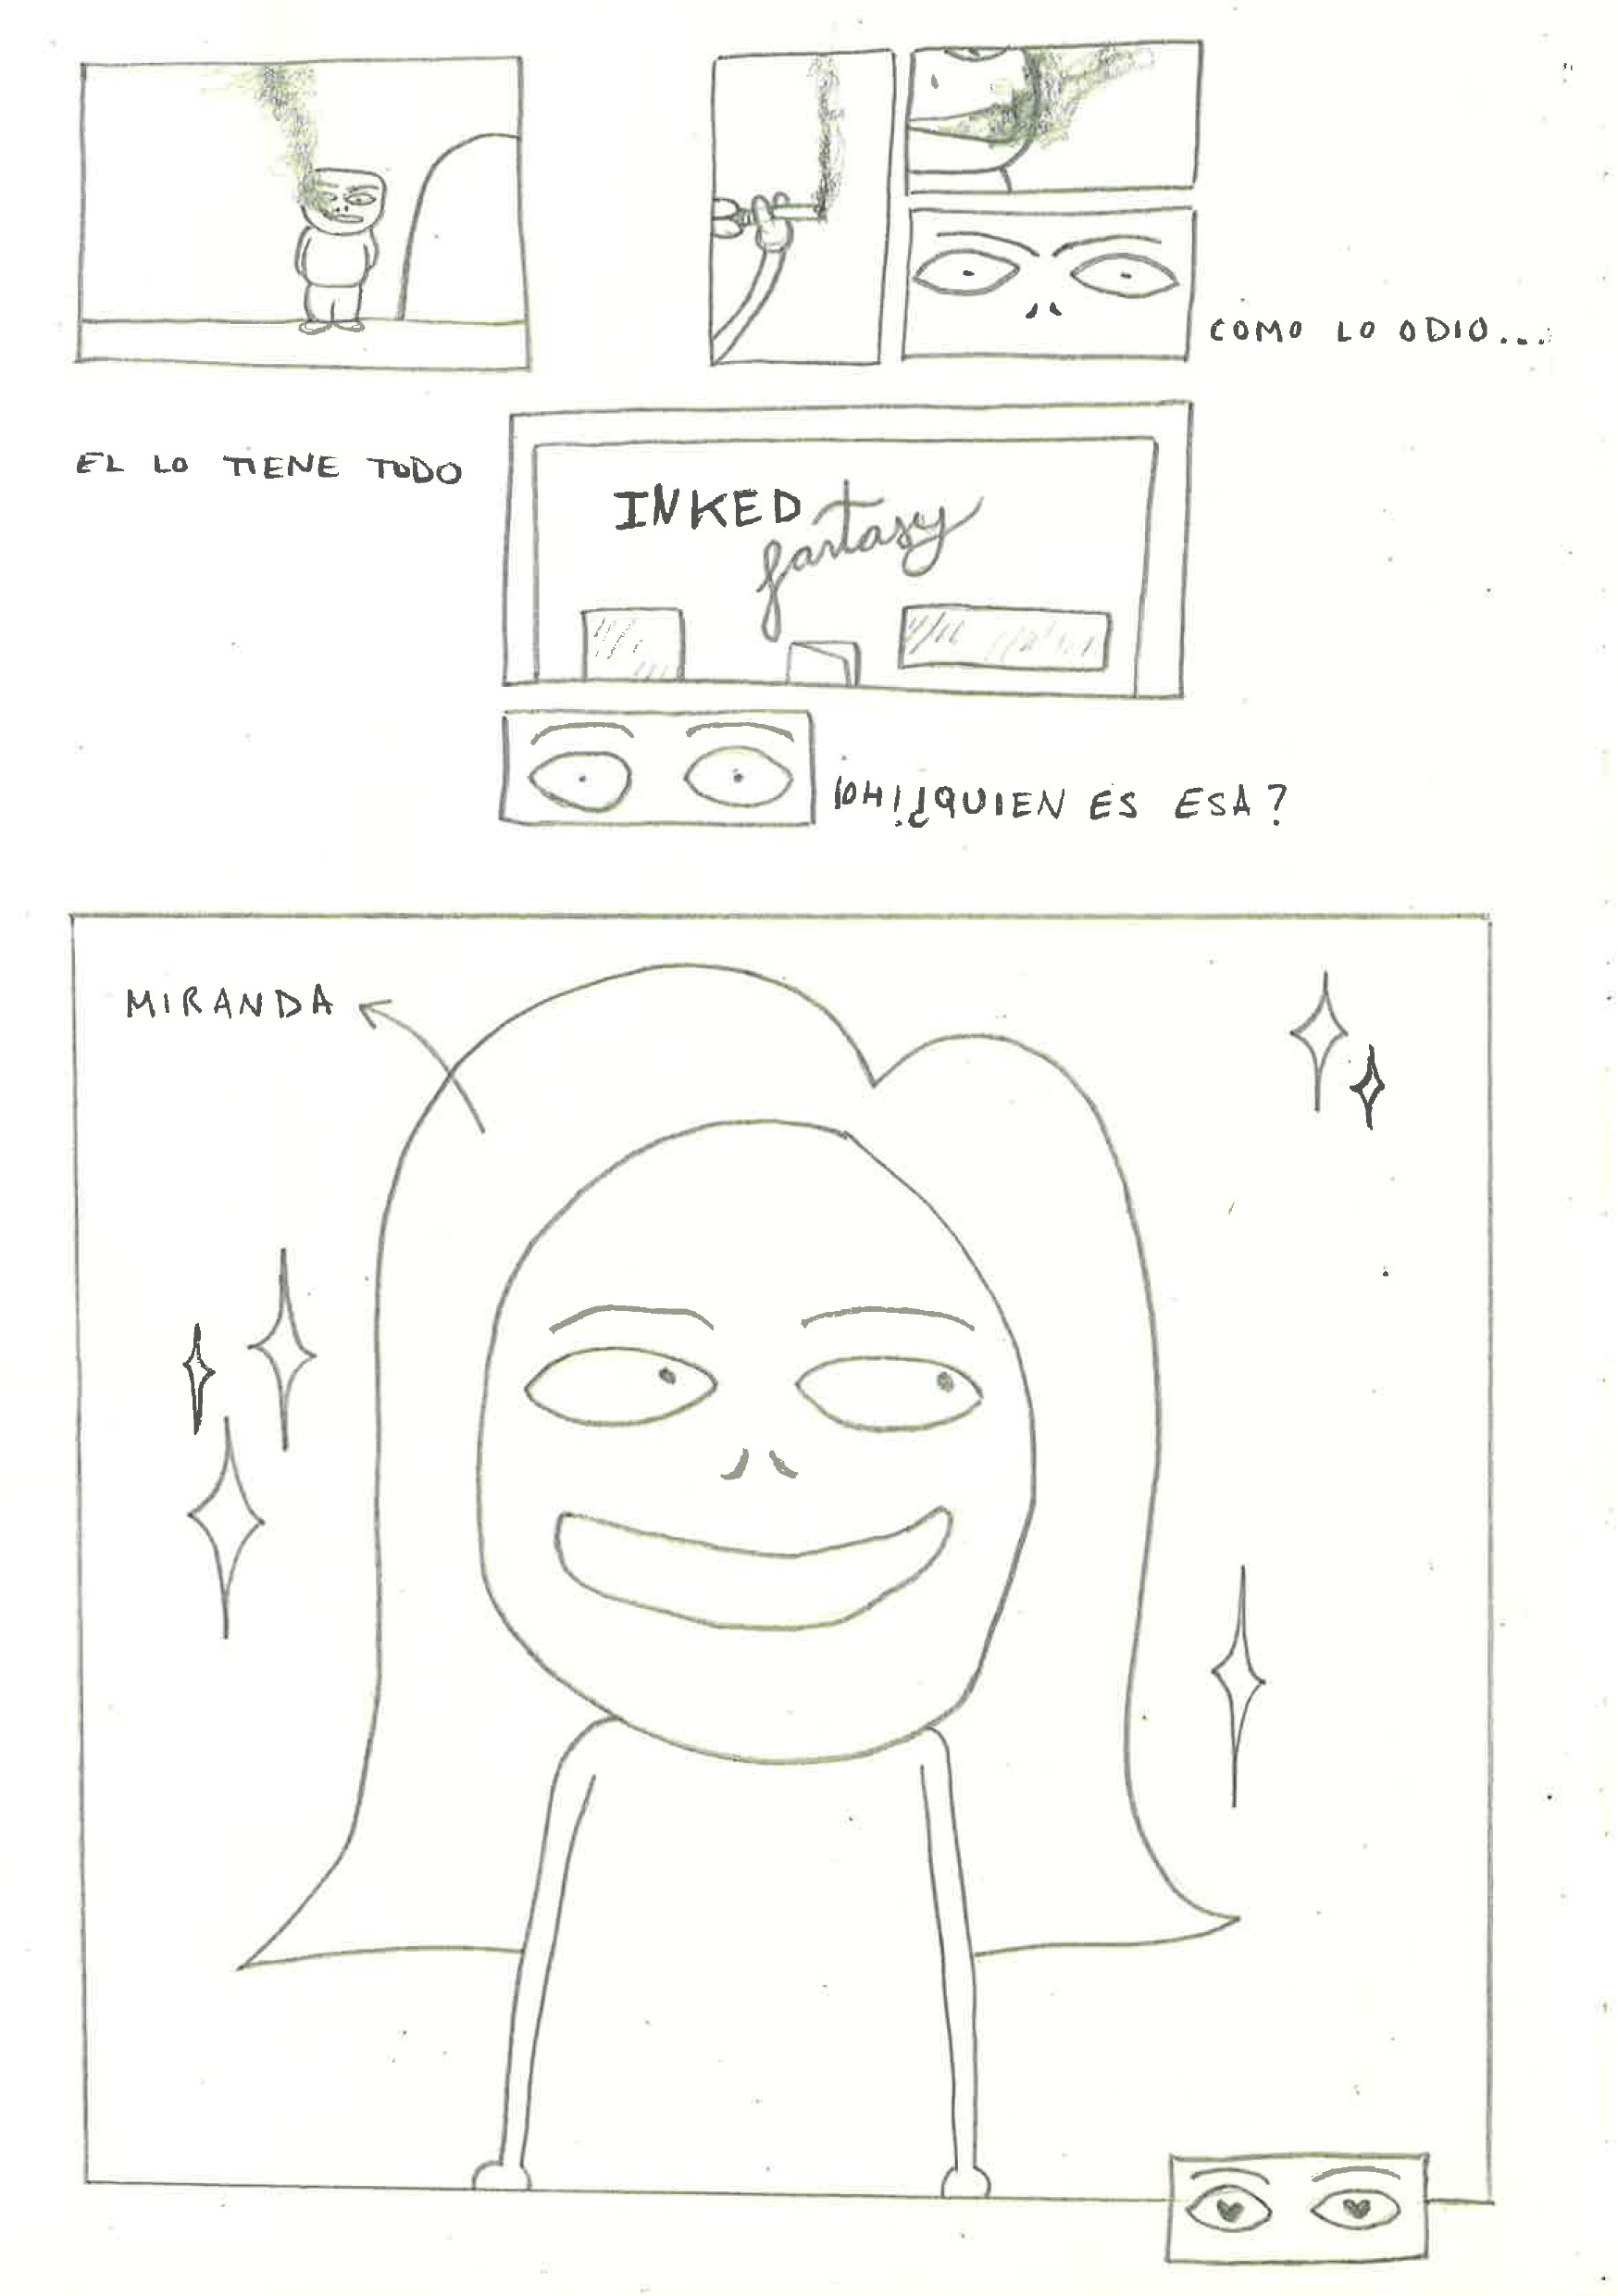 COMO LO ODIO...
EL LO TIENE TODO
INKED
fantasy
¡OH! ¿QUIEN ES ESA?
MIRANDA